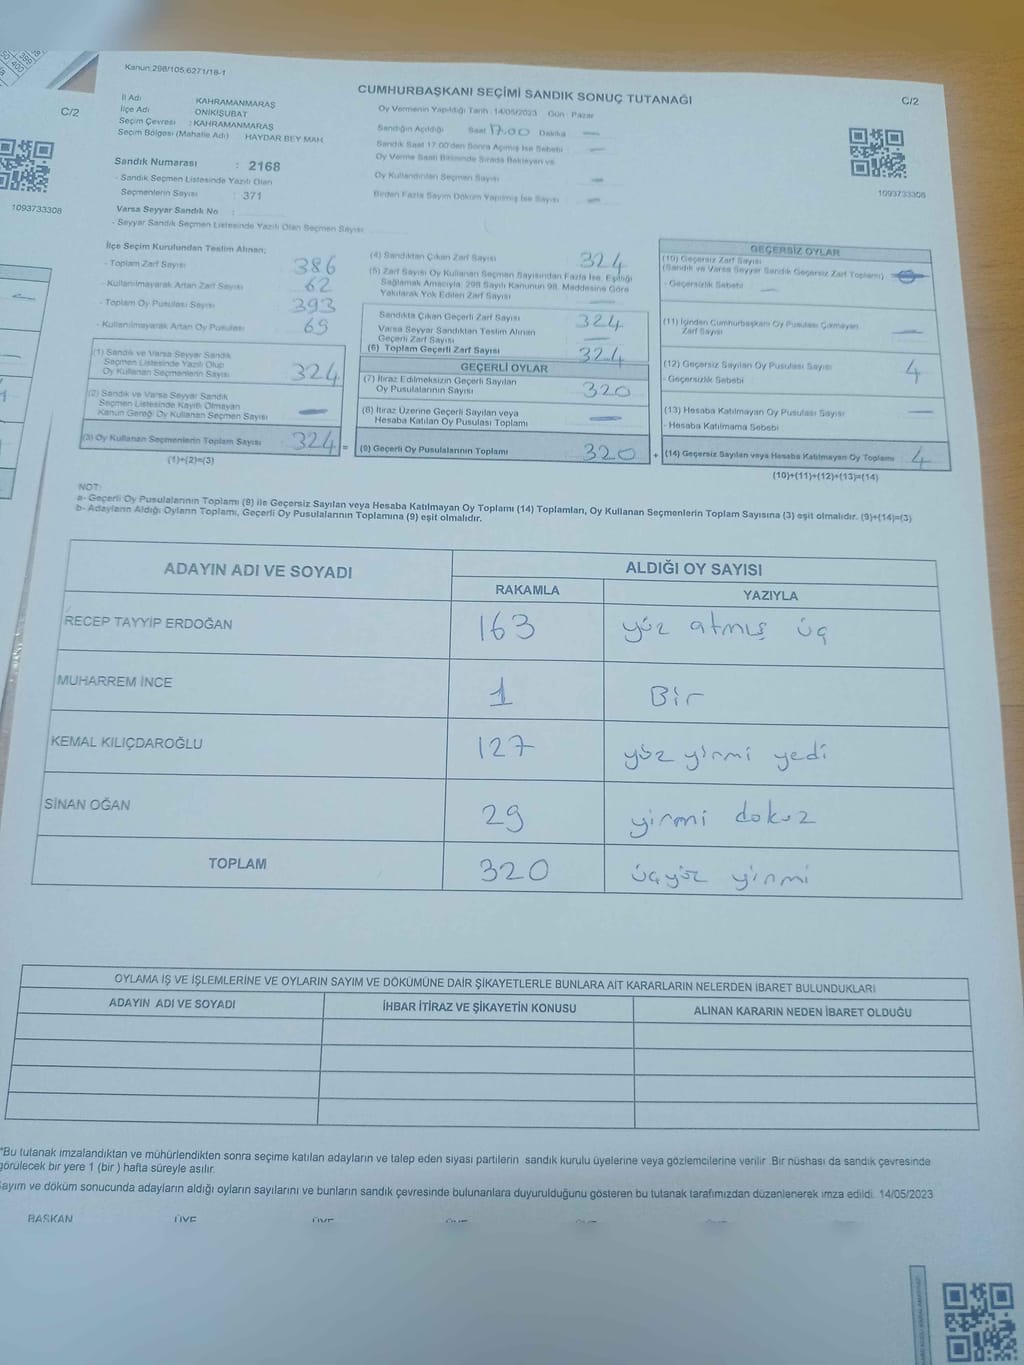 Kanun:298/105,6271/18-1
CUMHURBAŞKANI SEÇİMİ SANDIK SONUÇ TUTANAĞI
C/2
C/2
İl Adı KAHRAMANMARAŞ
İlçe Adı ONİKİŞUBAT
Seçim Çevresi : KAHRAMANMARAŞ
Seçim Bölgesi (Mahalle Adı) HAYDAR BEY MAH
Sandık Numarası : 2168
- Sandık Seçmen Listesinde Yazılı Olan
Seçmenlerin Sayısı : 371
Varsa Seyyar Sandık No :
- Seyyar Sandık Seçmen Listesinde Yazılı Olan Seçmen Sayısı
Oy Vermenin Yapıldığı Tarih : 14/05/2023 Gün : Pazar
Sandığın Açıldığı Saat 17.00 Dakika —
Sandık Saat 17.00'den Sonra Açılmış İse Sebebi —
Oy Verme Saati Bitiminde Sırada Bekleyen ve
Oy Kullandırılan Seçmen Sayısı —
Birden Fazla Sayım Döküm Yapılmış İse Sayısı —
1093733308
1093733308
İlçe Seçim Kurulundan Teslim Alınan;
- Toplam Zarf Sayısı 386
- Kullanılmayarak Artan Zarf Sayısı 62
- Toplam Oy Pusulası Sayısı 393
- Kullanılmayarak Artan Oy Pusulası 69
(1) Sandık ve Varsa Seyyar Sandık
Seçmen Listesinde Yazılı Olup
Oy Kullanan Seçmenlerin Sayısı 324
(2) Sandık ve Varsa Seyyar Sandık
Seçmen Listesinde Kayıtlı Olmayan
Kanun Gereği Oy Kullanan Seçmen Sayısı —
(3) Oy Kullanan Seçmenlerin Toplam Sayısı 324 =
(1)+(2)=(3)
(4) Sandıktan Çıkan Zarf Sayısı 324
(5) Zarf Sayısı Oy Kullanan Seçmen Sayısından Fazla İse, Eşitliği
Sağlamak Amacıyla, 298 Sayılı Kanunun 98. Maddesine Göre
Yakılarak Yok Edilen Zarf Sayısı —
Sandıkta Çıkan Geçerli Zarf Sayısı 324
Varsa Seyyar Sandıktan Teslim Alınan
Geçerli Zarf Sayısı —
(6) Toplam Geçerli Zarf Sayısı 324
GEÇERLİ OYLAR
(7) İtiraz Edilmeksizin Geçerli Sayılan
Oy Pusulalarının Sayısı 320
(8) İtiraz Üzerine Geçerli Sayılan veya
Hesaba Katılan Oy Pusulası Toplamı —
(9) Geçerli Oy Pusulalarının Toplamı 320 +
GEÇERSİZ OYLAR
(10) Geçersiz Zarf Sayısı
(Sandık ve Varsa Seyyar Sandık Geçersiz Zarf Toplamı)
- Geçersizlik Sebebi —
(11) İçinden Cumhurbaşkanı Oy Pusulası Çıkmayan
Zarf Sayısı —
(12) Geçersiz Sayılan Oy Pusulası Sayısı 4
- Geçersizlik Sebebi
(13) Hesaba Katılmayan Oy Pusulası Sayısı —
- Hesaba Katılmama Sebebi
(14) Geçersiz Sayılan veya Hesaba Katılmayan Oy Toplamı 4
(10)+(11)+(12)+(13)=(14)
NOT:
a- Geçerli Oy Pusulalarının Toplamı (9) ile Geçersiz Sayılan veya Hesaba Katılmayan Oy Toplamı (14) Toplamları, Oy Kullanan Seçmenlerin Toplam Sayısına (3) eşit olmalıdır. (9)+(14)=(3)
b- Adayların Aldığı Oyların Toplamı, Geçerli Oy Pusulalarının Toplamına (9) eşit olmalıdır.
ADAYIN ADI VE SOYADI ALDIĞI OY SAYISI
RAKAMLA YAZIYLA
RECEP TAYYİP ERDOĞAN 163 yüz atmış üç
MUHARREM İNCE 1 Bir
KEMAL KILIÇDAROĞLU 127 yüz yirmi yedi
SİNAN OĞAN 29 yirmi dokuz
TOPLAM 320 üçyüz yirmi
OYLAMA İŞ VE İŞLEMLERİNE VE OYLARIN SAYIM VE DÖKÜMÜNE DAİR ŞİKAYETLERLE BUNLARA AİT KARARLARIN NELERDEN İBARET BULUNDUKLARI
ADAYIN ADI VE SOYADI İHBAR İTİRAZ VE ŞİKAYETİN KONUSU ALINAN KARARIN NEDEN İBARET OLDUĞU
*Bu tutanak imzalandıktan ve mühürlendikten sonra seçime katılan adayların ve talep eden siyasi partilerin sandık kurulu üyelerine veya gözlemcilerine verilir. Bir nüshası da sandık çevresinde
görülecek bir yere 1 (bir ) hafta süreyle asılır.
Sayım ve döküm sonucunda adayların aldığı oyların sayılarını ve bunların sandık çevresinde bulunanlara duyurulduğunu gösteren bu tutanak tarafımızdan düzenlenerek imza edildi. 14/05/2023
BAŞKAN ÜYE ÜYE